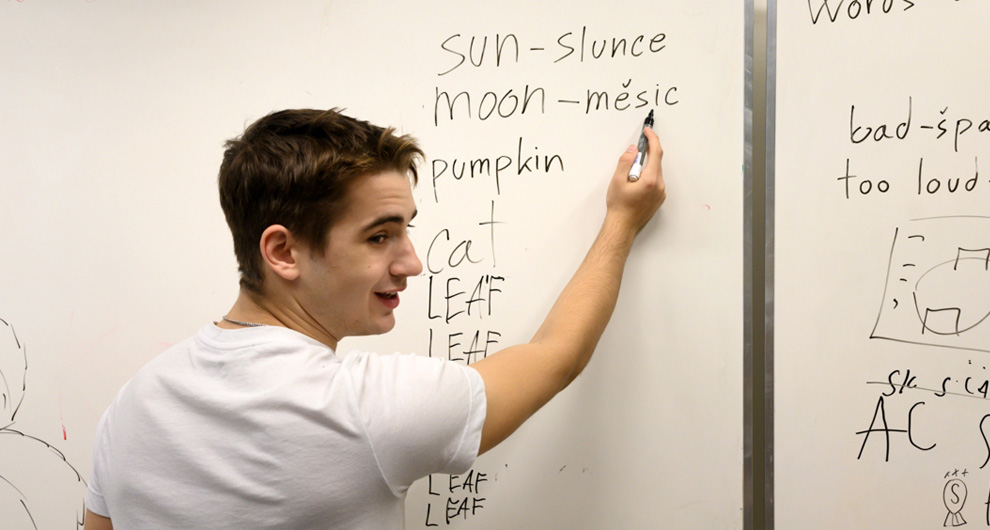 sun - slunce
moon - měsic
pumpkin
cat
LEAF
LEAF
LEAF
LEAF
Words
bad - špa
too loud -
AC
S